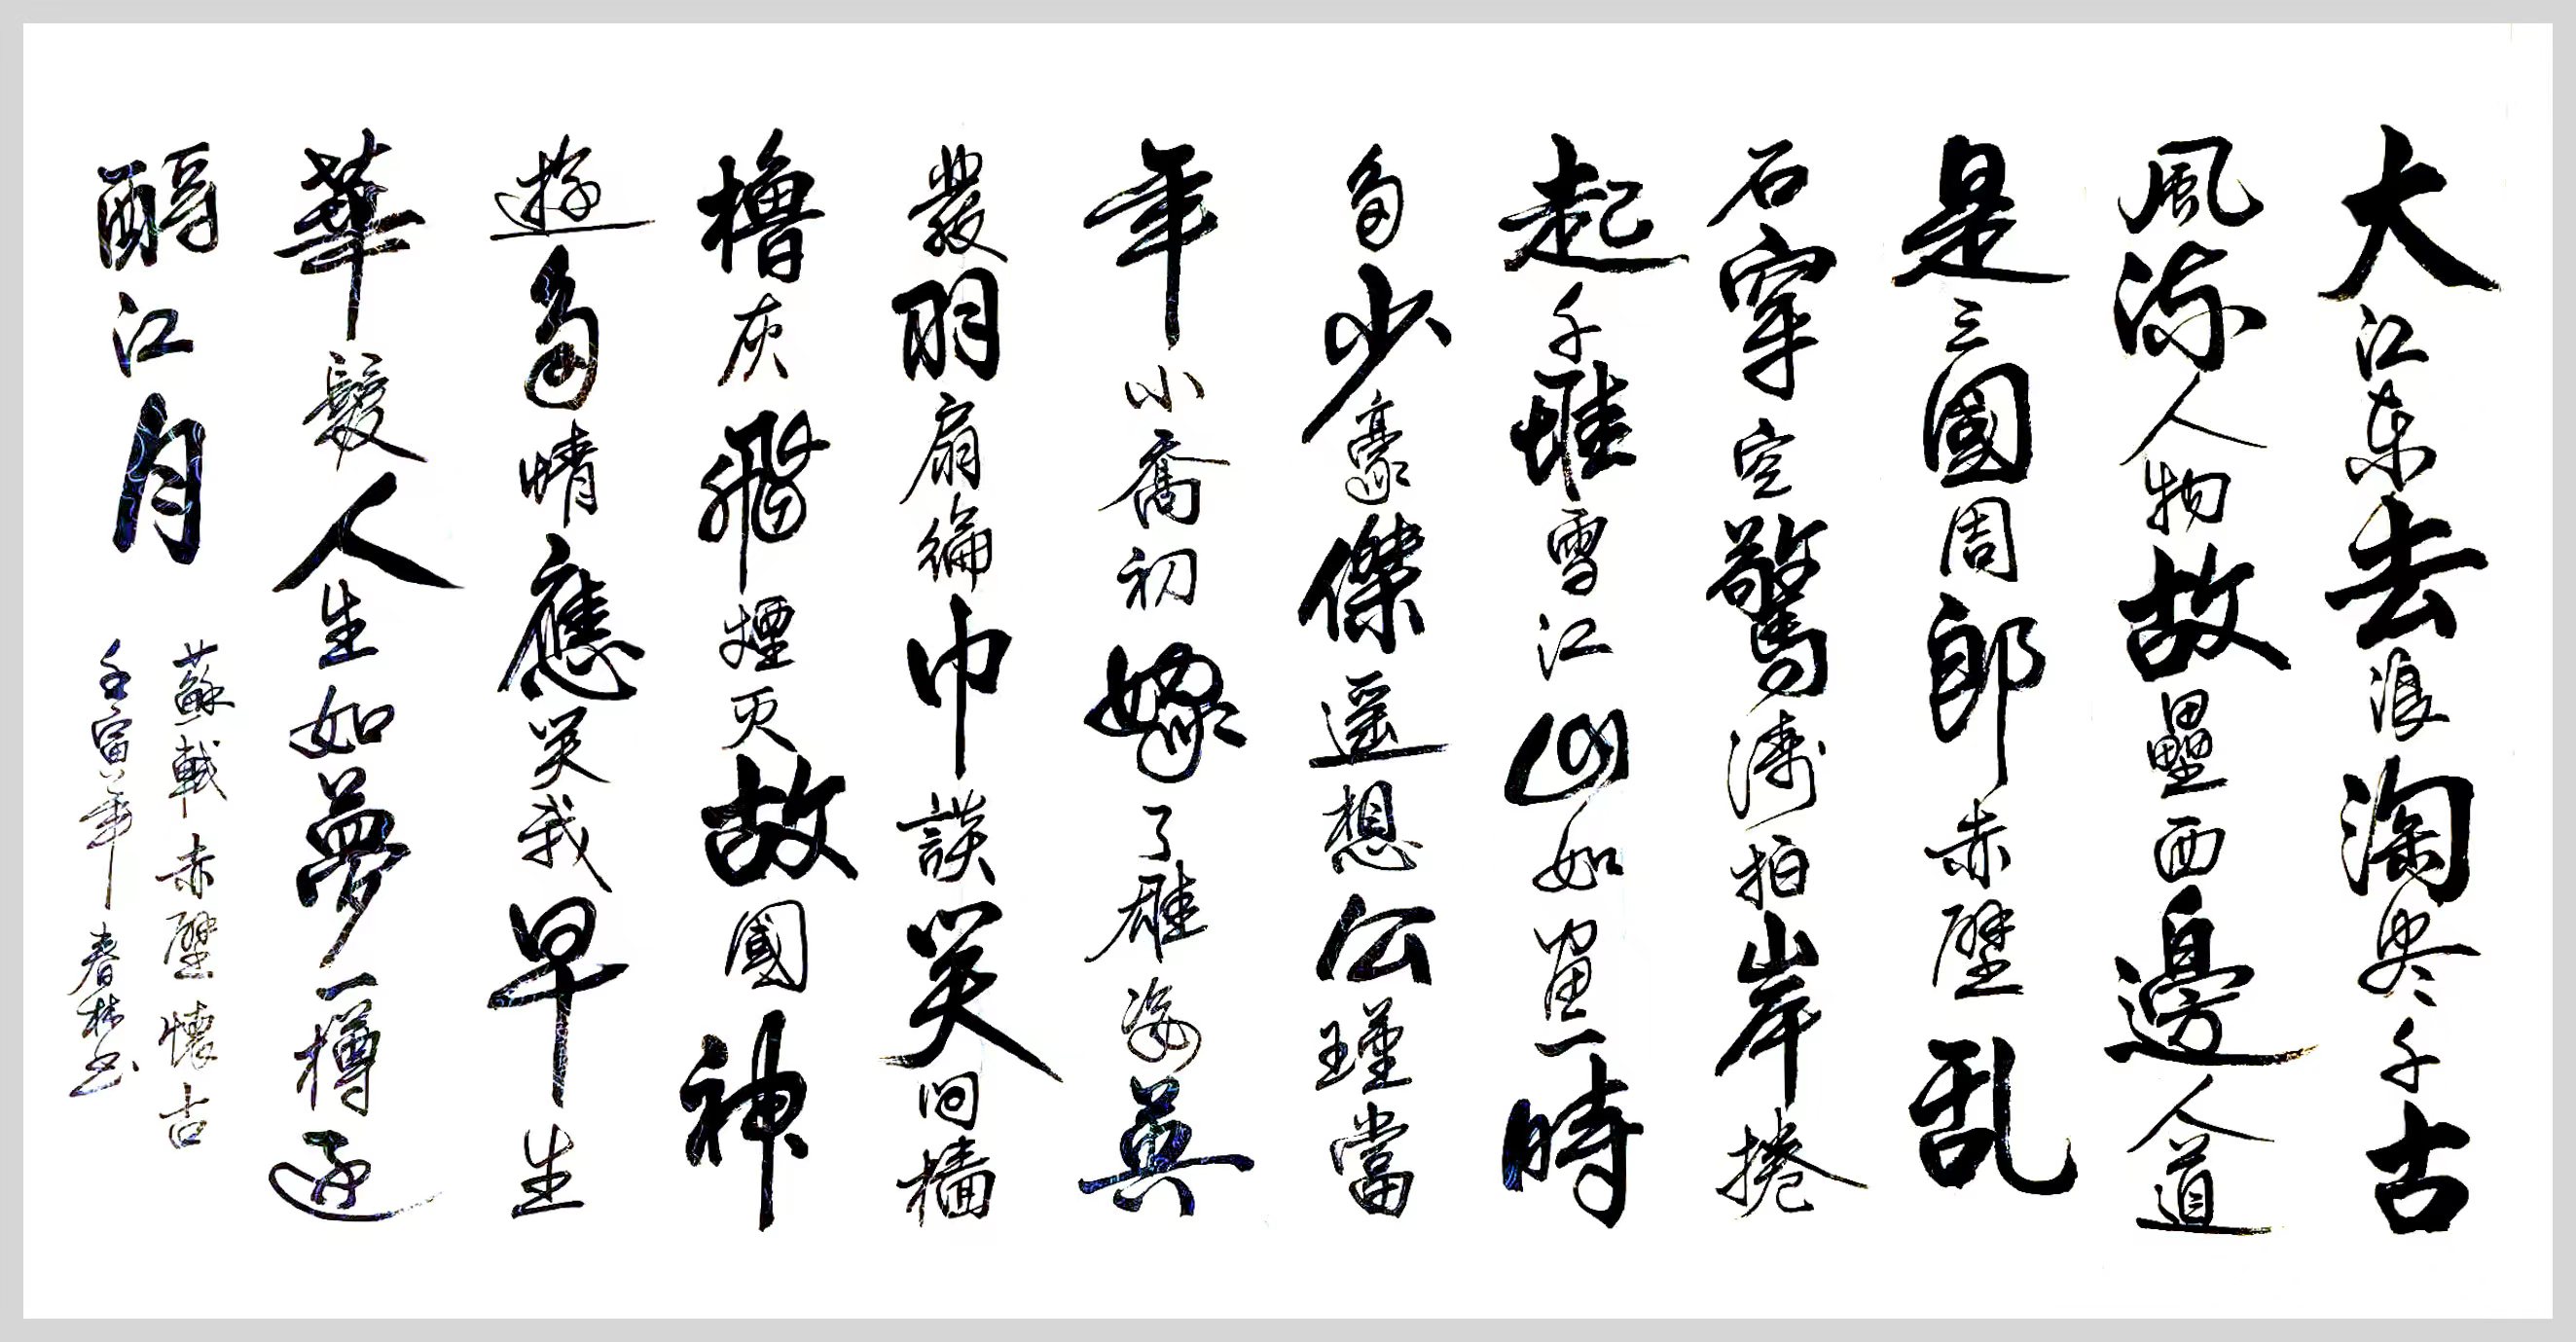 大江东去浪淘尽千古
風流人物故壘西邊人道
是三國周郎赤壁乱
石穿空驚濤拍岸捲
起千堆雪江山如畫一時
多少豪傑遥想公瑾當
年小喬初嫁了雄姿英
發羽扇綸巾談笑间檣
櫓灰飛煙灭故國神
遊多情應笑我早生
華髮人生如夢一樽还
酹江月
蘇軾赤壁懷古
壬寅年春林书